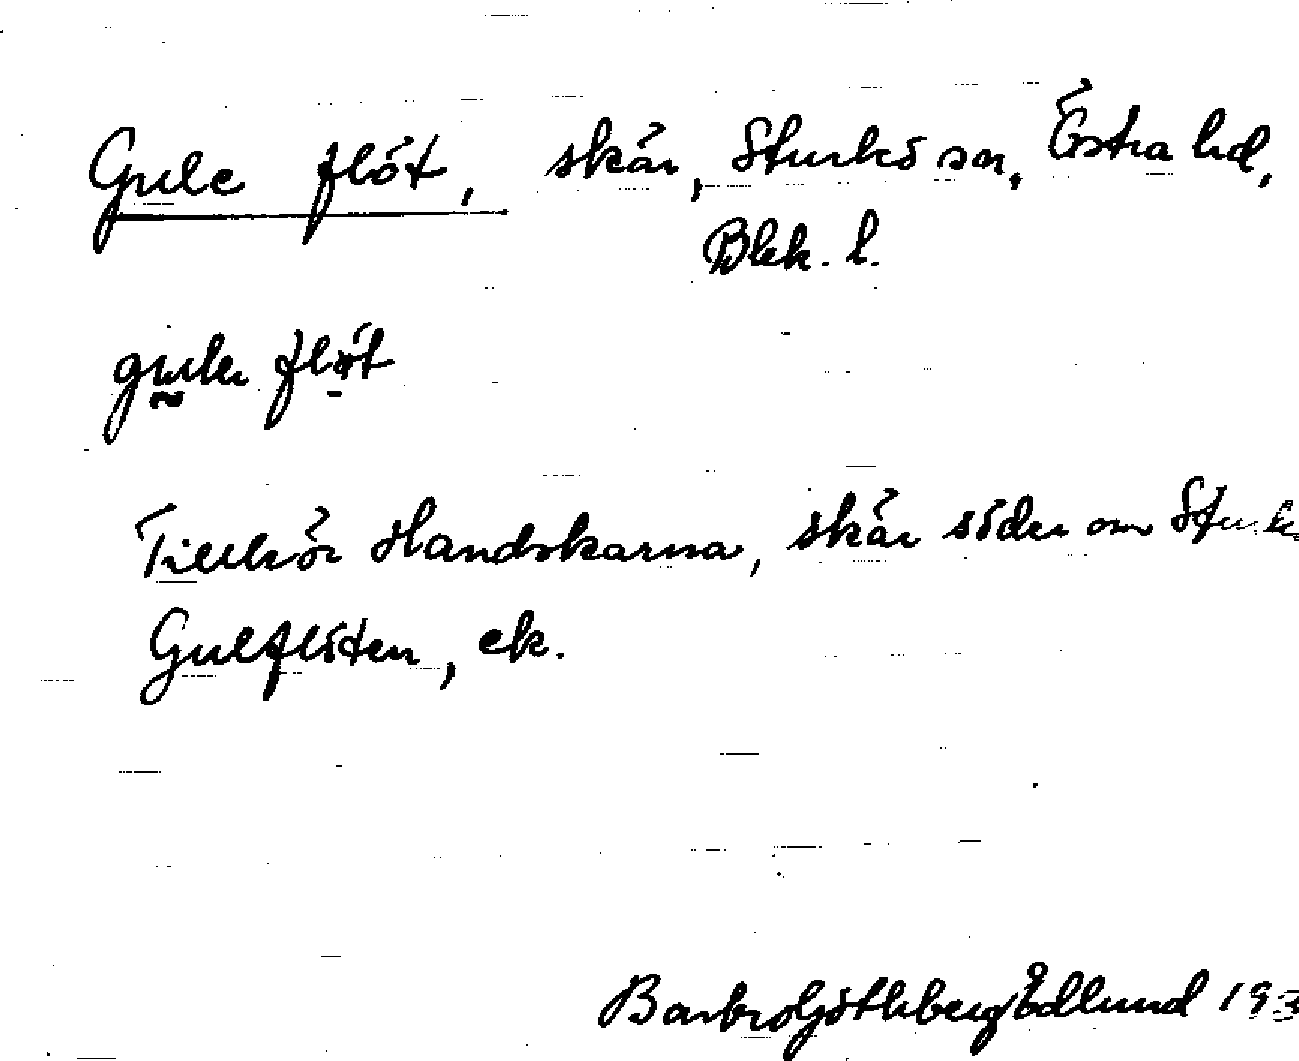 Gule flöt, skär, Sturkö sn, Östra hd,
Blek. l.
gule flöt
Tillhör Handskarna, skär söder om
Gulflöten, ek.
Barbro Götleberg Edlund